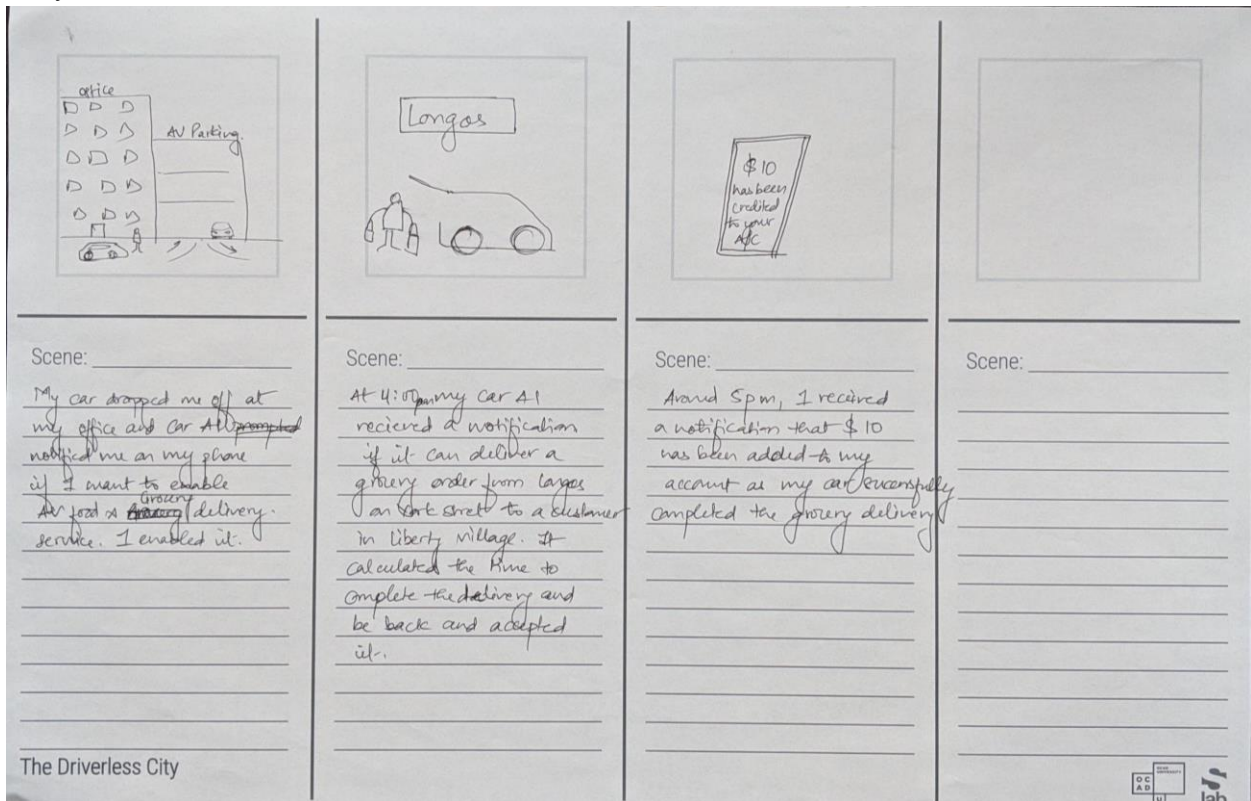 office
AV Parking.
Scene:
My car dropped me off at
my office and Car AI prompted
notified me on my phone
if I want to enable
AV food & Grocery delivery.
service. I enabled it.
Longos
Scene:
At 4:00pm my Car AI
recieved a notification
if it can deliver a
grocery order from Longos
on York Street to a customer
in liberty village. It
calculated the time to
complete the delivery and
be back and accepted
it.
$ 10
has been
credited
to your
A/C
Scene:
Around 5pm, I received
a notification that $ 10
has been added to my
account as my car sucessfully
completed the grocery delivery
Scene:
The Driverless City
OC
AD
U
lab